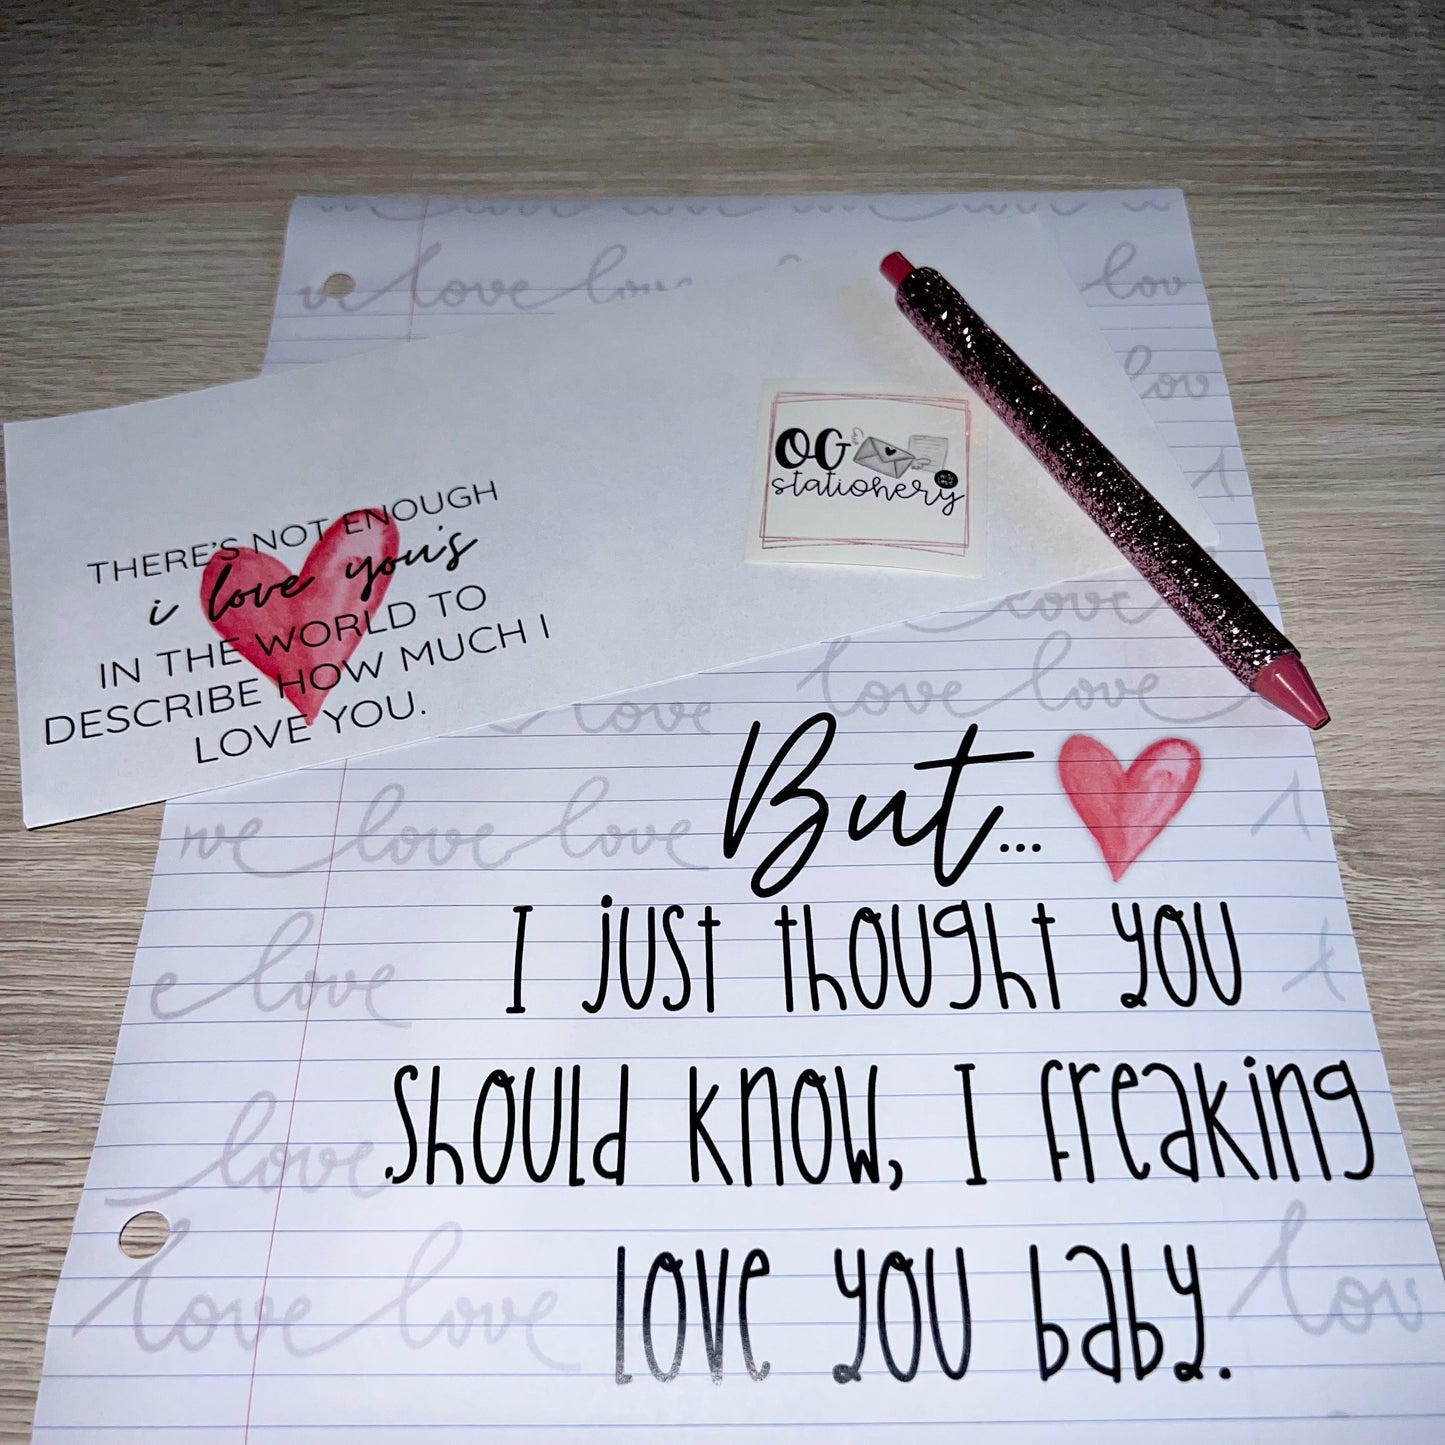 love love love love love
love love lov
lov
THERE'S NOT ENOUGH
i love you's
IN THE WORLD TO
DESCRIBE HOW MUCH I
LOVE YOU.
OG
stationery
love
love love
love
love love
But...
love
I just thought you
love
should know, I freaking
love love
love you baby.
lov